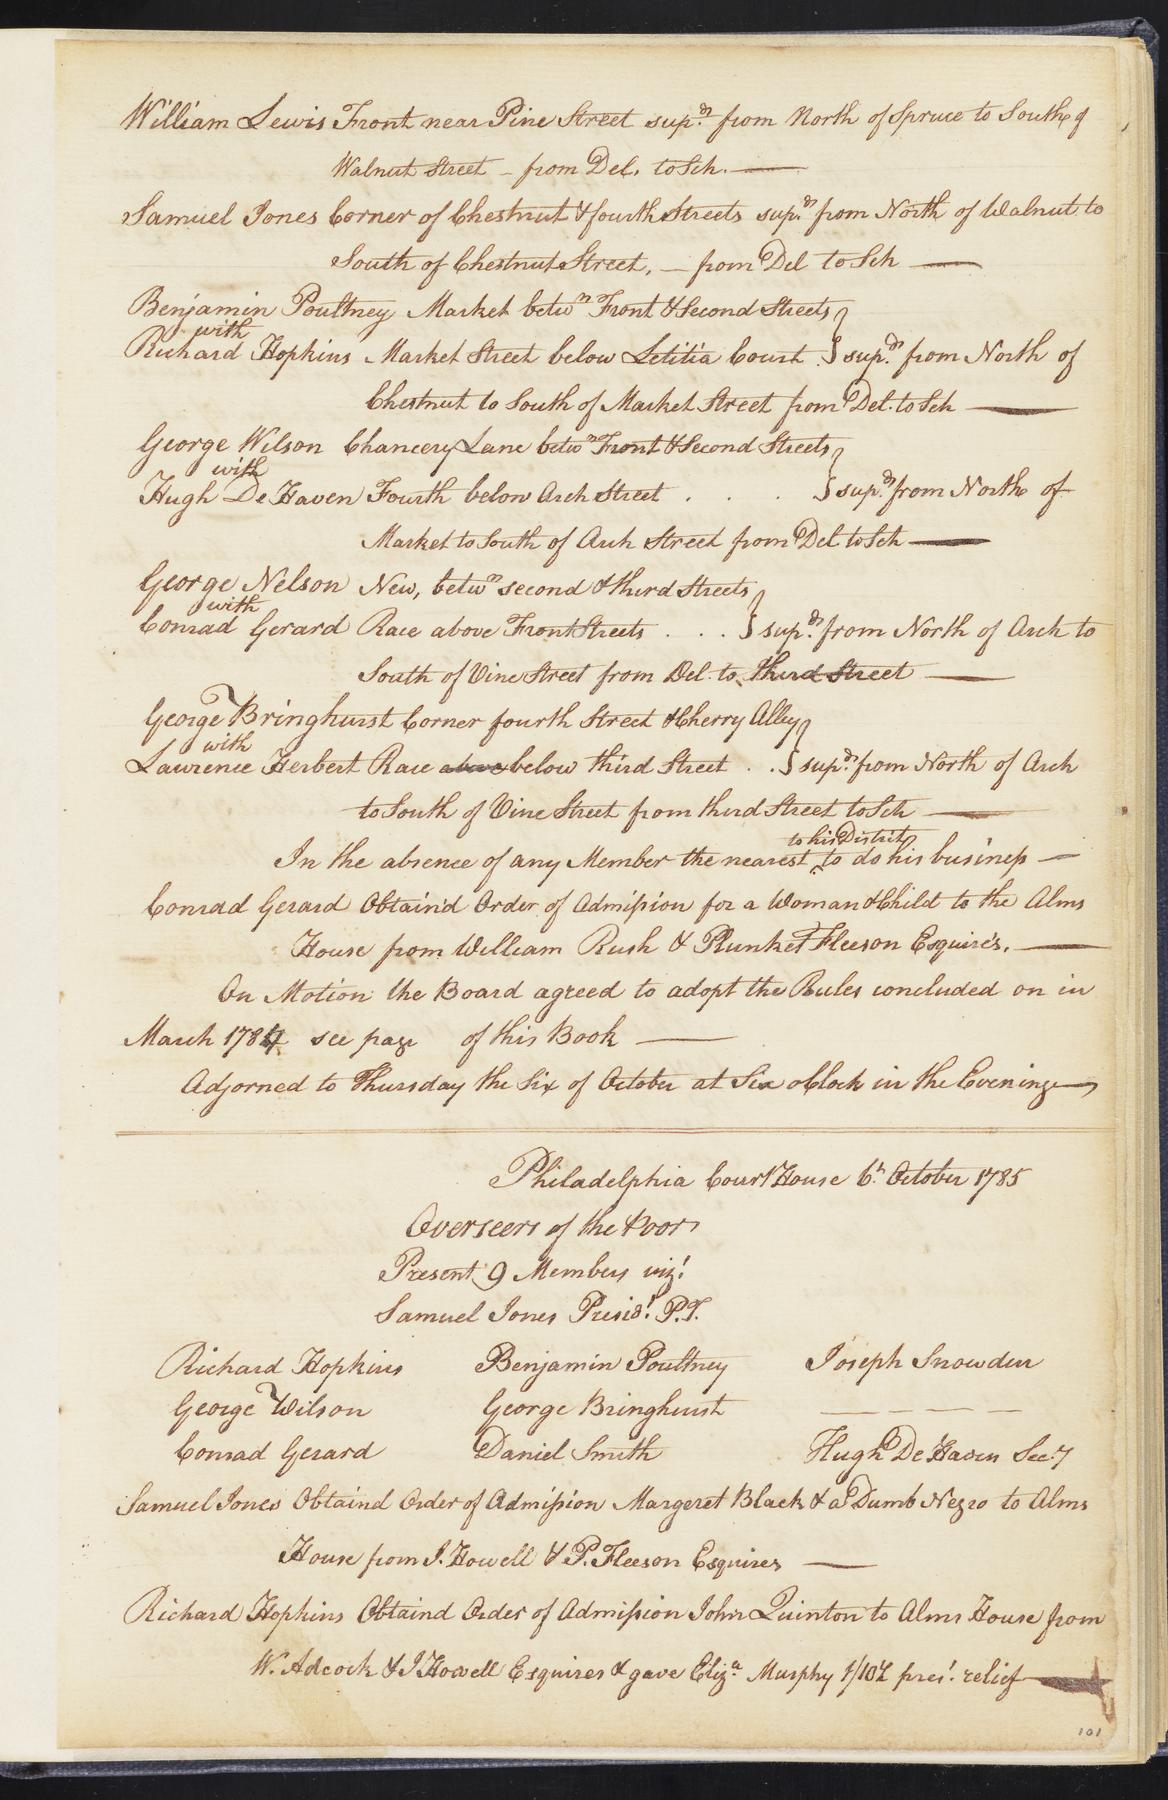 William Lewis Front near Pine Street sup.ds from North of Spruce to South of
Walnut Street – from Del. to Sch. —
Samuel Jones Corner of Chestnut & fourth Streets sup.ds from North of Walnut to
South of Chestnut Street, – from Del to Sch —
Benjamin Poultney Market betwn Front & Second Streets }
with
Richard Hopkins Market Street below Letitia Court . } sup.ds from North of
Chestnut to South of Market Street from Del. to Sch —
George Wilson Chancery Lane betwn Front & Second Streets }
with
Hugh De Haven Fourth below Arch Street . . . } sup.ds from North of
Market to South of Arch Street from Del to Sch —
George Nelson New, betwn second & third Streets }
with
Conrad Gerard Race above Front Streets . . . } sup.ds from North of Arch to
South of Vine Street from Del. to third Street —
George Bringhurst Corner fourth Street & Cherry Alley }
with
Lawrence Herbert Race above below third Street . . } sup.ds from North of Arch
to South of Vine Street from third Street to Sch —
to his District
In the absence of any Member the nearest ^ to do his business —
Conrad Gerard Obtain'd Order of Admission for a Woman & Child to the Alms
House from William Rush & Plunket Fleeson Esquires. —
On Motion the Board agreed to adopt the Rules concluded on in
March 1784 see page of this Book —
Adjorned to Thursday the Six of October at Six oClock in the Evening —
Philadelphia Court House 6th October 1785
Overseers of the Poor
Present 9 Members vizt
Samuel Jones Presidt P.T.
Richard Hopkins Benjamin Poultney Joseph Snowden
George Wilson George Bringhurst — — — — —
Conrad Gerard Daniel Smith Hugh De Haven Secy
Samuel Jones Obtaind Order of Admission Margeret Black & a Dumb Negro to Alms
House from J. Howell & P. Fleeson Esquires —
Richard Hopkins Obtaind Order of Admission John Quinton to Alms House from
W. Adcock & J Howell Esquires & gave Eliza Murphy prest relief —
101